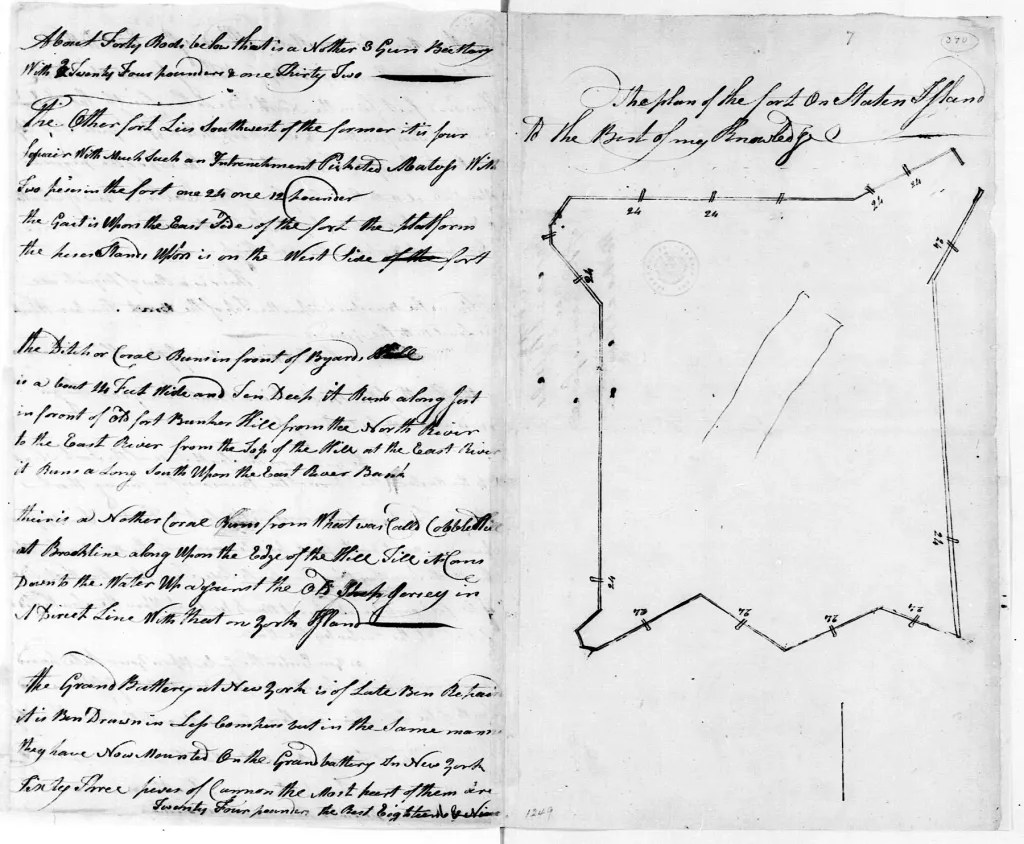 About Forty Rods below that is a Nother 3 Gun Battery
With 2 Twenty Four pounders & one Thirty Two
The Other fort Lies Southwest of the former it is four
Squair With Much Such an Intrenchment Picketed With
Two peses in the fort one 24 one 12 pounder
the Gait is Upon the East Side of the fort the platform
the peses Stands Upon is on the West Side of the fort
the Ditch or Coral Runs in front of Byards Hill
is a bout 14 Feet Wide and Ten Deep it Runs along Just
in foront of fort Bunker Hill from the North River
to the East River from the Top of the Hill at the East River
it Runs a Long South Upon the East River Bank
their is a Nother Coral Runs from What was Calld Cobble Hill
at Brookline along Upon the Edge of the Hill Till it Coms
Down to the Water Up against the Ship Jersey in
A Direct Line With that on York Island
the Grand Battery at New York is of Late Ben Repair
it is Ben Drawn in Less Compers but in the Same mann
they have Now Mounted On the Grand battery In New York
Sixty Three peses of Cannon the Most peart of them are
Twenty Four pounders the Rest Eighteens & Nine
7
370
The plan of the fort On Staten Island
To the Best of my Knowledge
24
24
24
24
24
24
24
24
24
24
24
24
1249